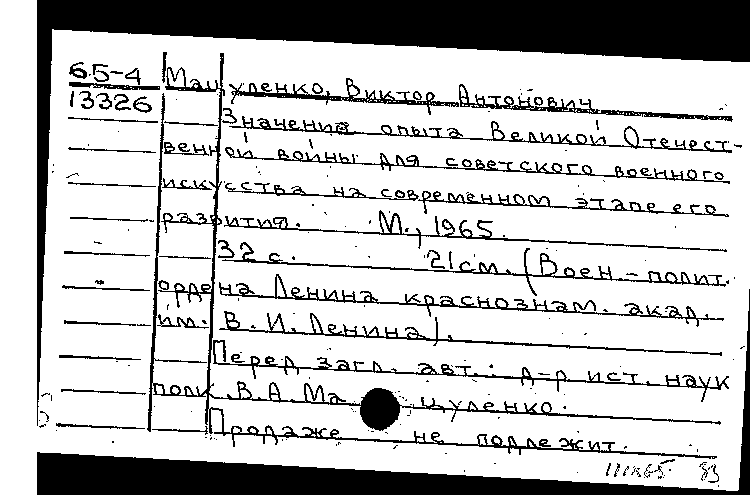 65-4 Мацуленко, Виктор Антонович
13326
Значение опыта Великой Отечест-
венной войны для советского военного
искусства на современном этапе его
развития. М., 1965.
32 с. 21см. (Воен-полит.
ордена Ленина краснознам. акад.
им. В.И.Ленина).
Перед загл. авт.: д-р ист. наук
полк. В.А.Мацуленко.
Продаже не подлежит.
83